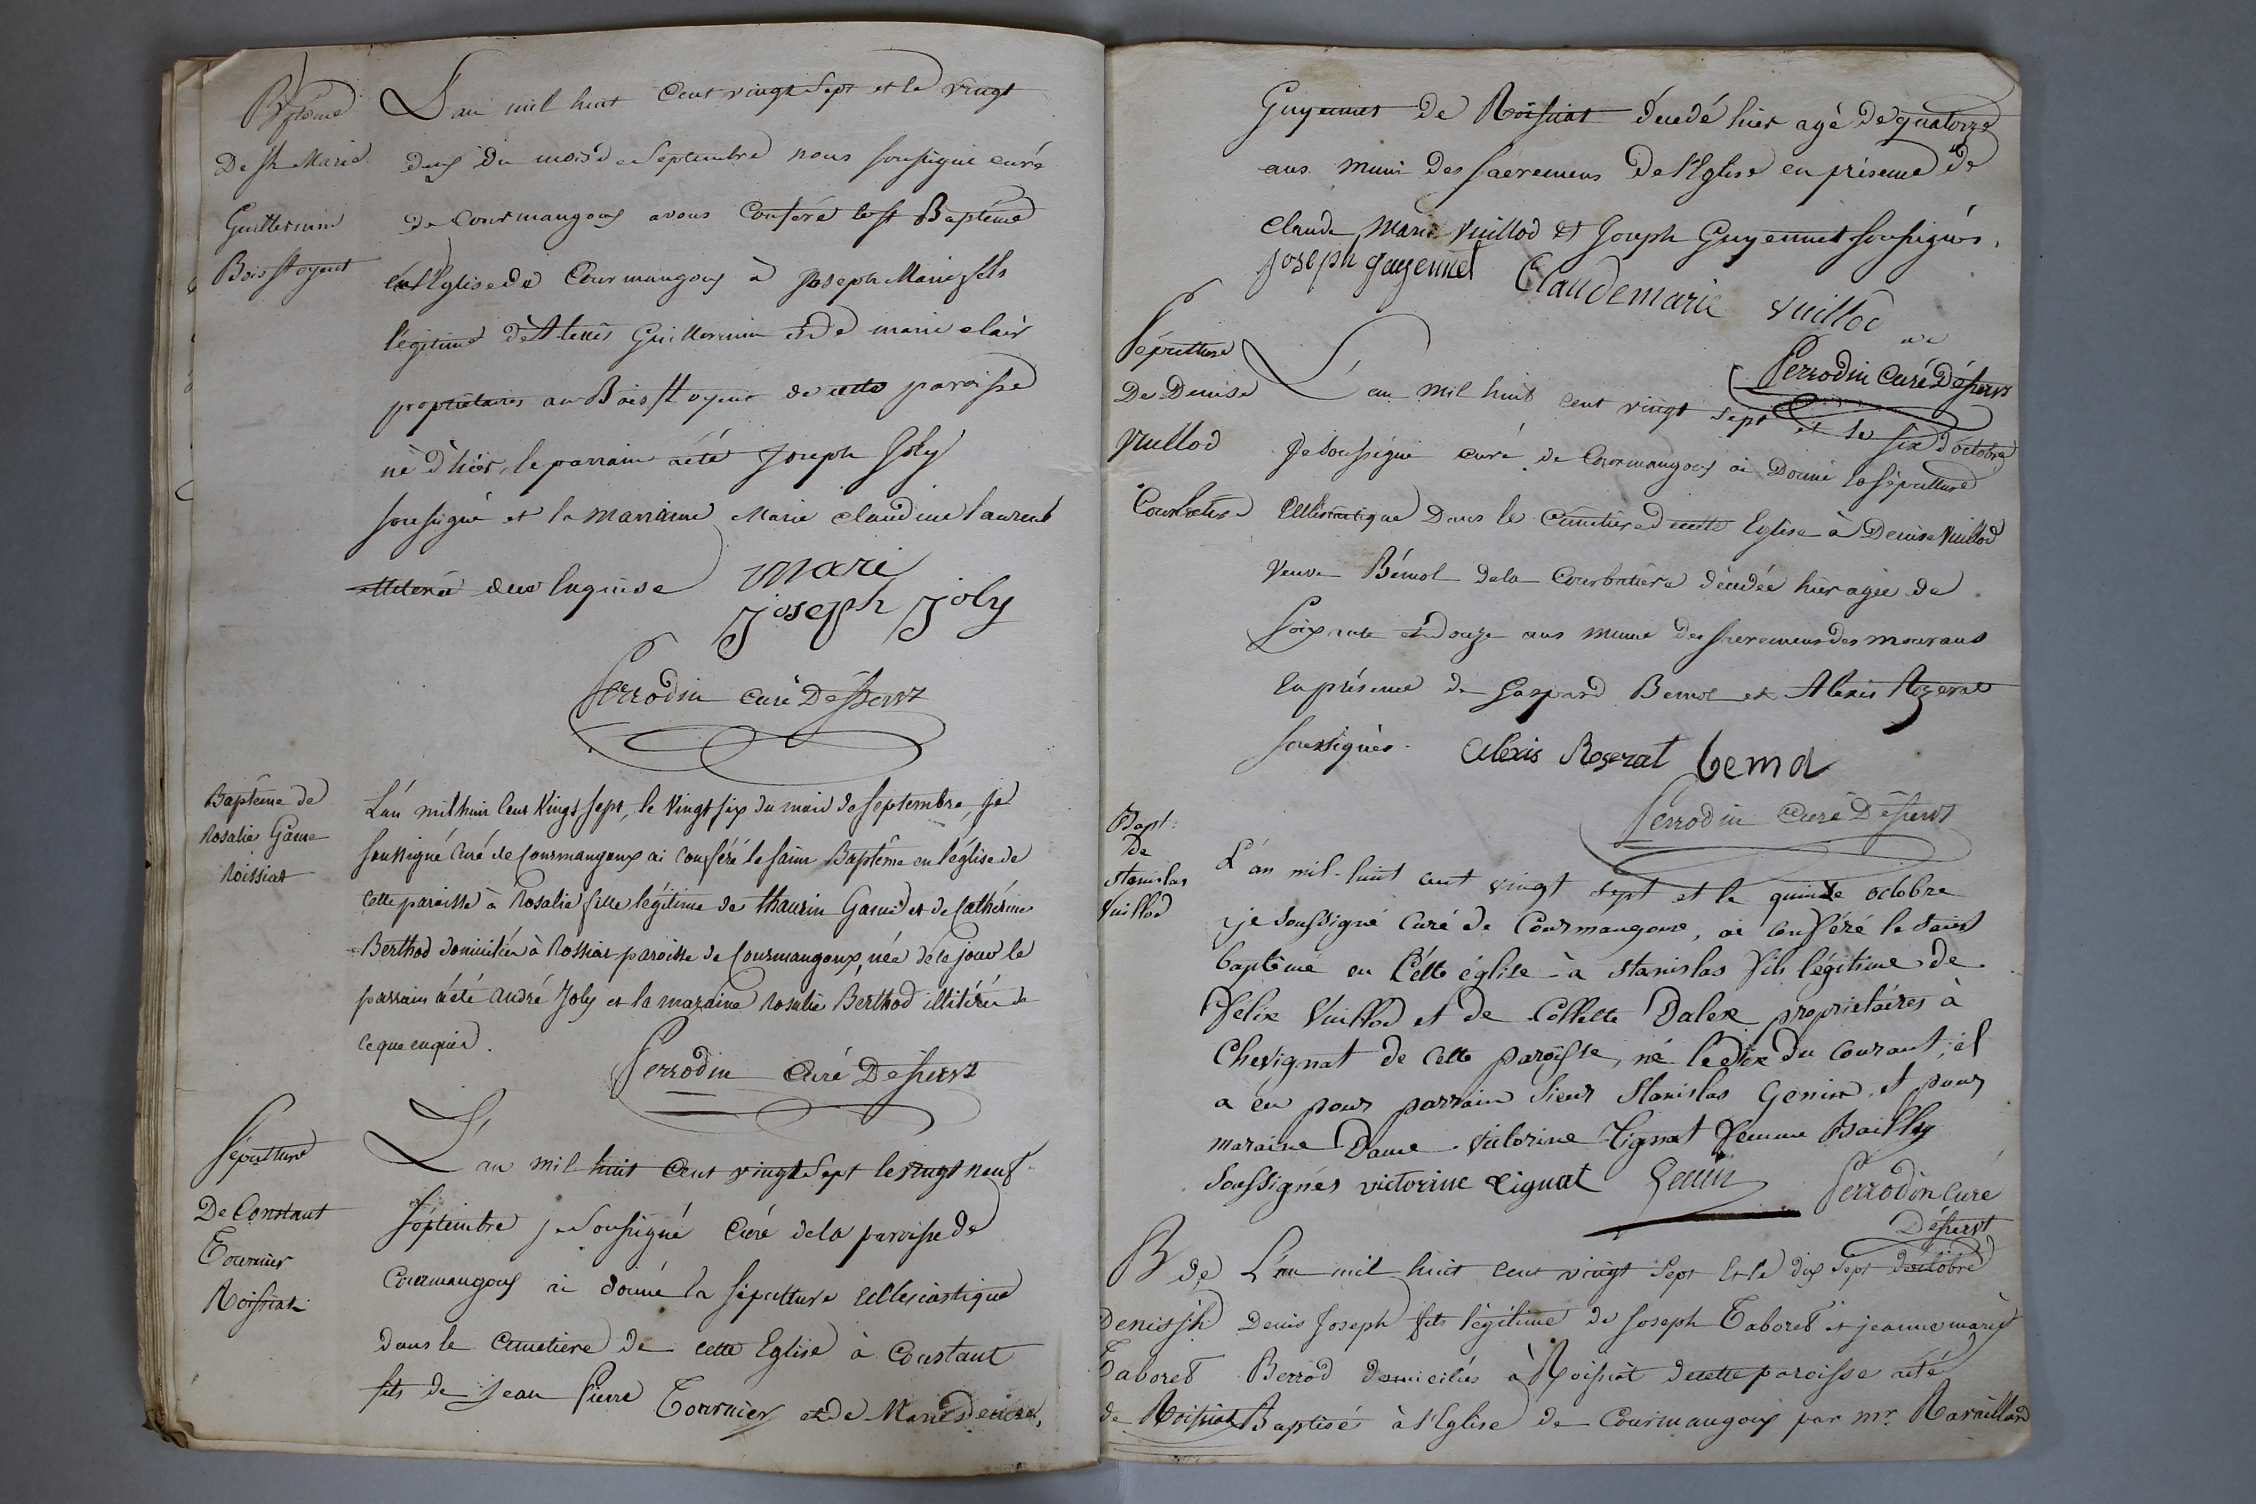 Baptême
De Jh Marie
Guillermin
Bois Royent
L'an mil huit cent vingt sept et le vingt
deux du mois de Septembre nous soussigné curé
de Courmangoux avons Conféré le st Baptême
en l'Eglise de Courmangoux à Joseph Marie fils
légitime d'Alexis Guillermin et de marie clair
propriétaires au Bois de cette paroisse
né d'hier, le parrain a été Joseph Joly
soussigné et la marraine Marie claudine laurent
illiterée de ce enquise mari
joseph joly
Perrodin Curé Desservt
Baptême de
Rosalie Game
Roissiat
L'an mil huit Cent Vingt Sept, le Vingt six du mois de Septembre, je
Soussigné Curé de Courmangoux ai Conféré le Saint Baptême en l'église de
Cette paroisse à Rosalie fille légitime de thaurin Game et de Cathérine
Berthod domiciliés à Rossiat paroisse de Courmangoux, née de ce jour le
parrain a été André Joly et la maraine Rosalie Berthod illitérés de
ce que enquis.
Perrodin Curé Desservt
Sépulture
De Constant
Tournier
Roissiat
L'an mil huit Cent vingt Sept le vingt neuf
Septembre je Soussigné Curé de la paroisse de
Courmangoux ai donné la sépulture ecclésiastique
dans le Cimetiere de cette Eglise à Constant
fils de Jean Pierre Tournier et de Marie
Guyennet De Roissiat décedé hier agé de quatorze
ans muni des sacremens De l'Eglise en présence de
Claude Marie Vuillod et Joseph Guyennet soussignés.
joseph guyennet Claudemarie vuillod
Perrodin Curé Desservt
Sépulture
De Denise
Vuillod
Courbatiere
L'an mil huit cent vingt sept et le six d'octobre
Je soussigné curé de Courmangoux ai Donné la sépulture
Ecclésiastique Dans le Cimetiere de cette Eglise à Denise Vuillod
Veuve Bémol de la Courbatiere décedée hier agée de
soixante et douze ans munie des sacremens des mourans
en présence de Gaspard Bemol et Alexis Rozerat
soussignés. alexis Rozerat bemol
Perrodin Curé Desservt
Bapt:
De
Stanislas
Vuillod
L'an mil-huit cent vingt sept et le quinze octobre
je soussigné Curé de Courmangoux, ai conféré le saint
baptême en Cette église à Stanislas fils légitime de
Félix Vuillod et de Collette Dalex propriétaires à
Chevignat de Cette paroisse, né le dix du courant; il
a eu pour parrain Sieur Stanislas Genin et pour
maraine Dame Victorine Tignat femme Bailly
Soussignés victorine Tignat Genin Perrodin Curé
Désservt
B de
Denis jh
Taboret
de Roissiat
L'an mil huit cent vingt Sept et le dix Sept d'octobre
Denis Joseph fils légitime de Joseph Taboret et jeanne marie
Berrod domiciliés à Roissiat de cette paroisse a été
Baptisé à l'Eglise de Courmangoux par mr. Ravaillard